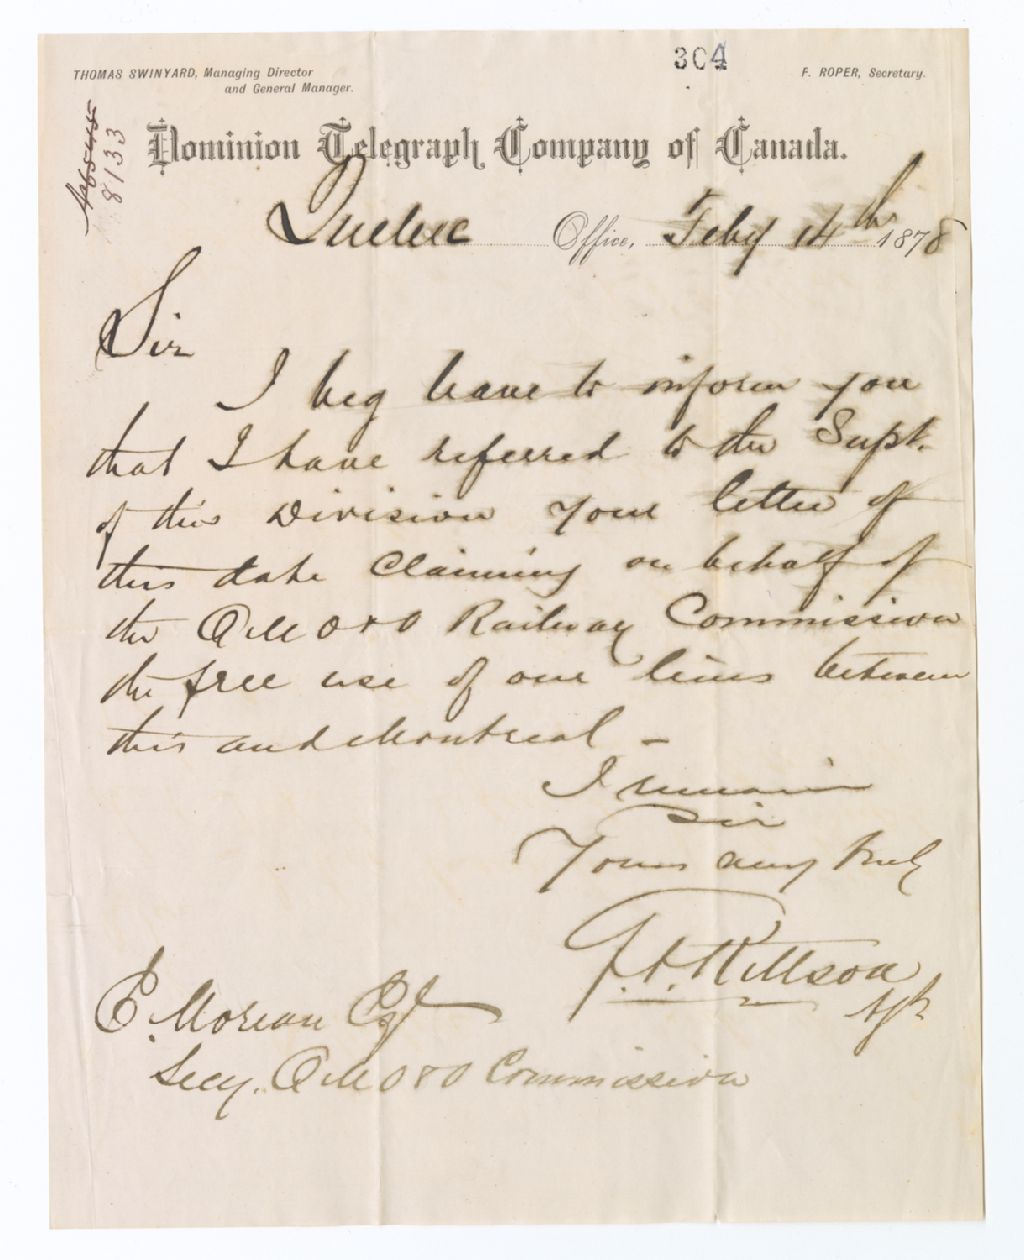 304
THOMAS SWINYARD, Managing Director
and General Manager.
F. ROPER, Secretary.
8133
Dominion Telegraph Company of Canada.
Quebec Office, Feby 14th 1878
Sir
I beg leave to inform you
that I have referred to the Supt.
of this Division your letter of
this date Claiming on behalf of
the Q M O & O Railway Commission
the free use of our lines between
this and Montreal –
I remain
Sir
Yours very truly
Agt
E. Moreau Esq
Secy. Q M O & O Commission